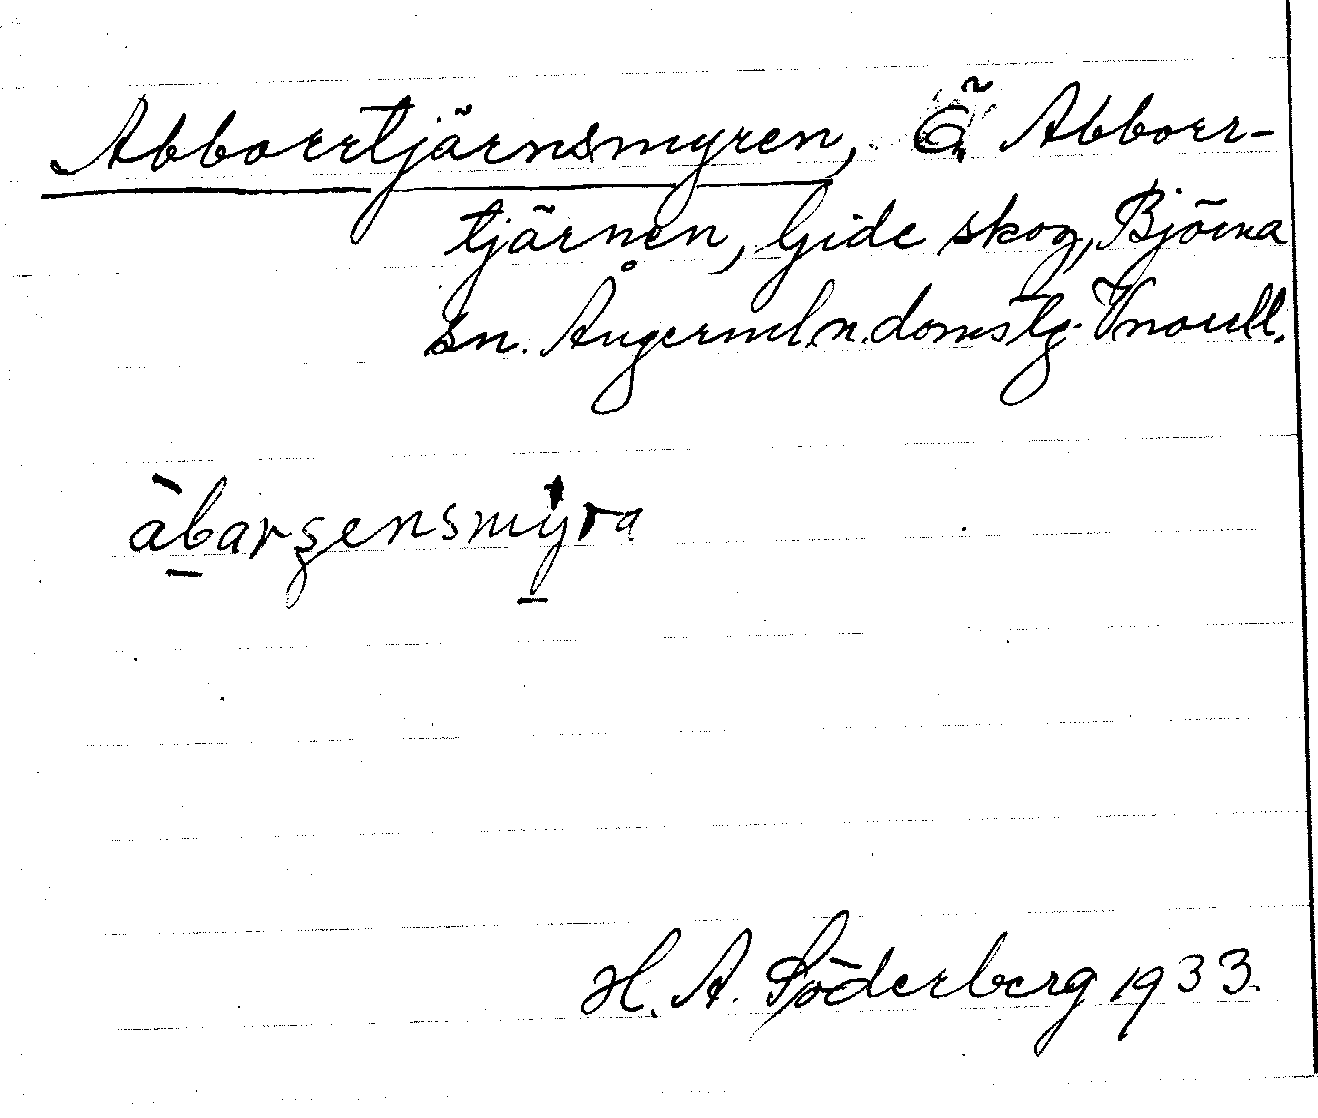 Abborrtjärnsmyren, Ö. Abborr-
tjärnen, Gide skog, Björna
sn. Ångerml. n. domstg. Vnorrl.
àbarʂensmyra
H. A. Söderberg 1933.